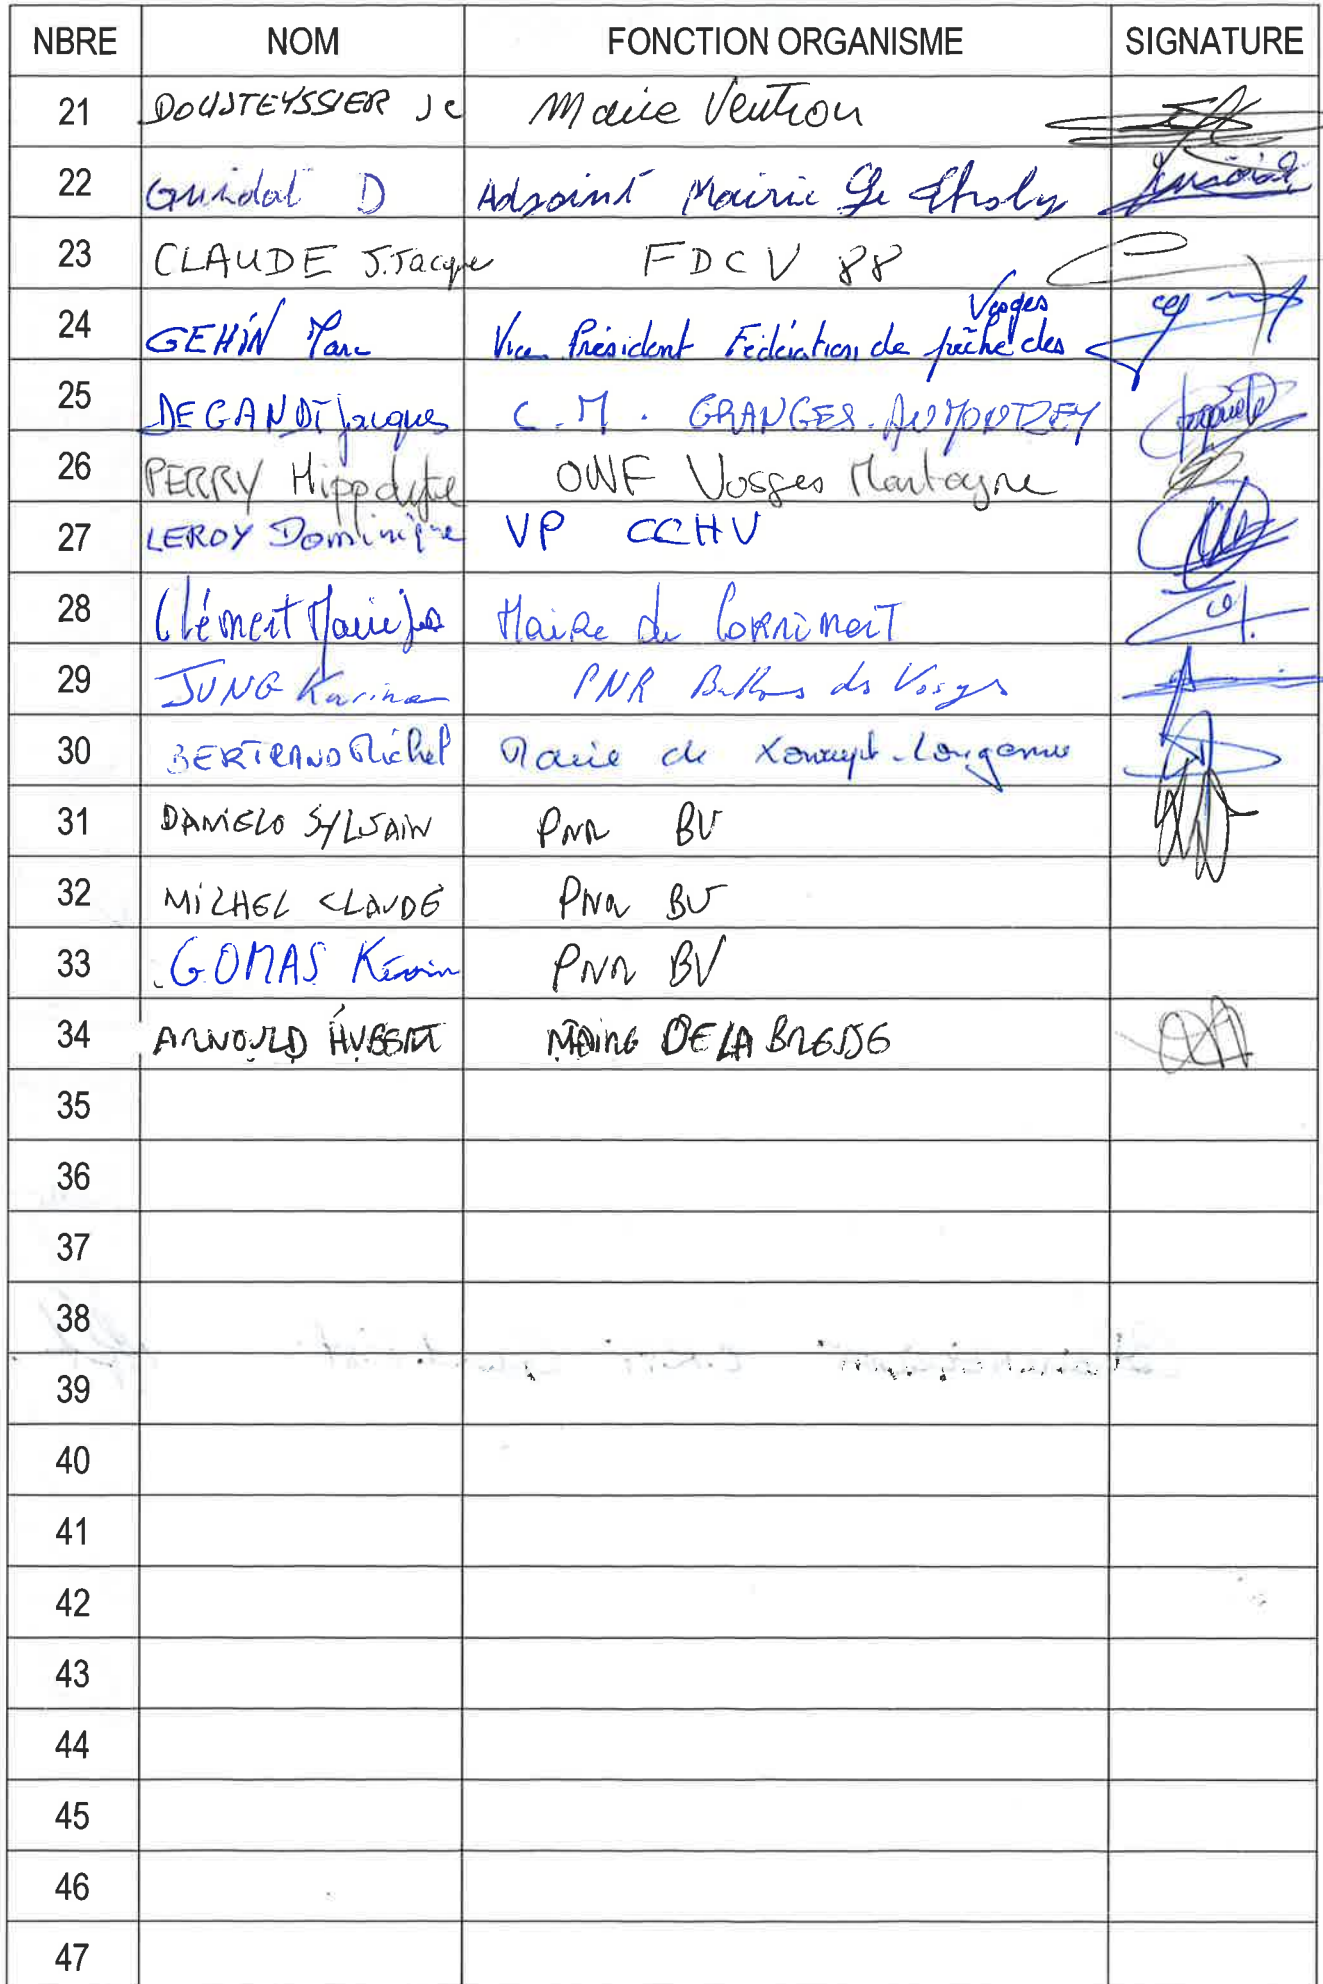 NBRE NOM FONCTION ORGANISME SIGNATURE
21 DOUSTEYSSIER JC Maire Ventron
22 Guidat D Adjoint Mairie Le Tholy
23 CLAUDE J.Jacque FDCV 88
24 GEHIN Marc Vice Président Fédération de pêche des Vosges
25 DEGANDT Jacques C.M. GRANGES.AUMONTZEY
26 PERRY Hippolyte ONF Vosges Montagne
27 LEROY Dominique VP CCHV
28 Clément Marie Jo Maire de CORNIMONT
29 JUNG Karina PNR Ballons des Vosges
30 BERTRAND Michel Maire de Xonrupt-Longemer
31 DANIELO SYLVAIN PNR BV
32 MICHEL CLAUDE PNR BV
33 GOMAS Kévin PNR BV
34 ARNOULD HUBERT MAIRE DE LA BRESSE
35
36
37
38
39
40
41
42
43
44
45
46
47